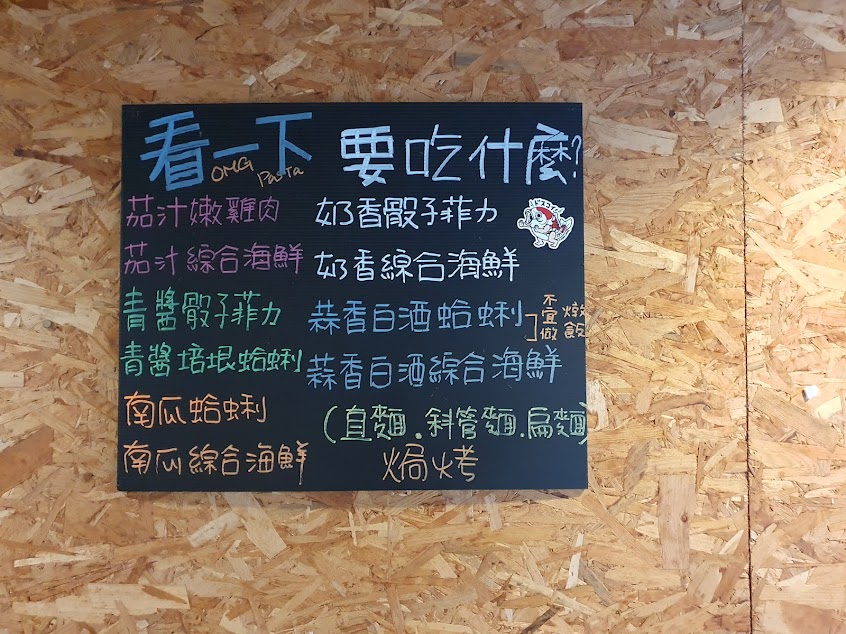 看一下 要吃什麼?
OMG Pasta
茄汁嫩雞肉
茄汁綜合海鮮
青醬骰子菲力
青醬培垠蛤蜊
南瓜蛤蜊
南瓜綜合海鮮
奶香骰子菲力
奶香綜合海鮮
蒜香白酒蛤蜊
不宜做 燉飯
蒜香白酒綜合海鮮
(直麵.斜管麵.扁麵)
焗烤